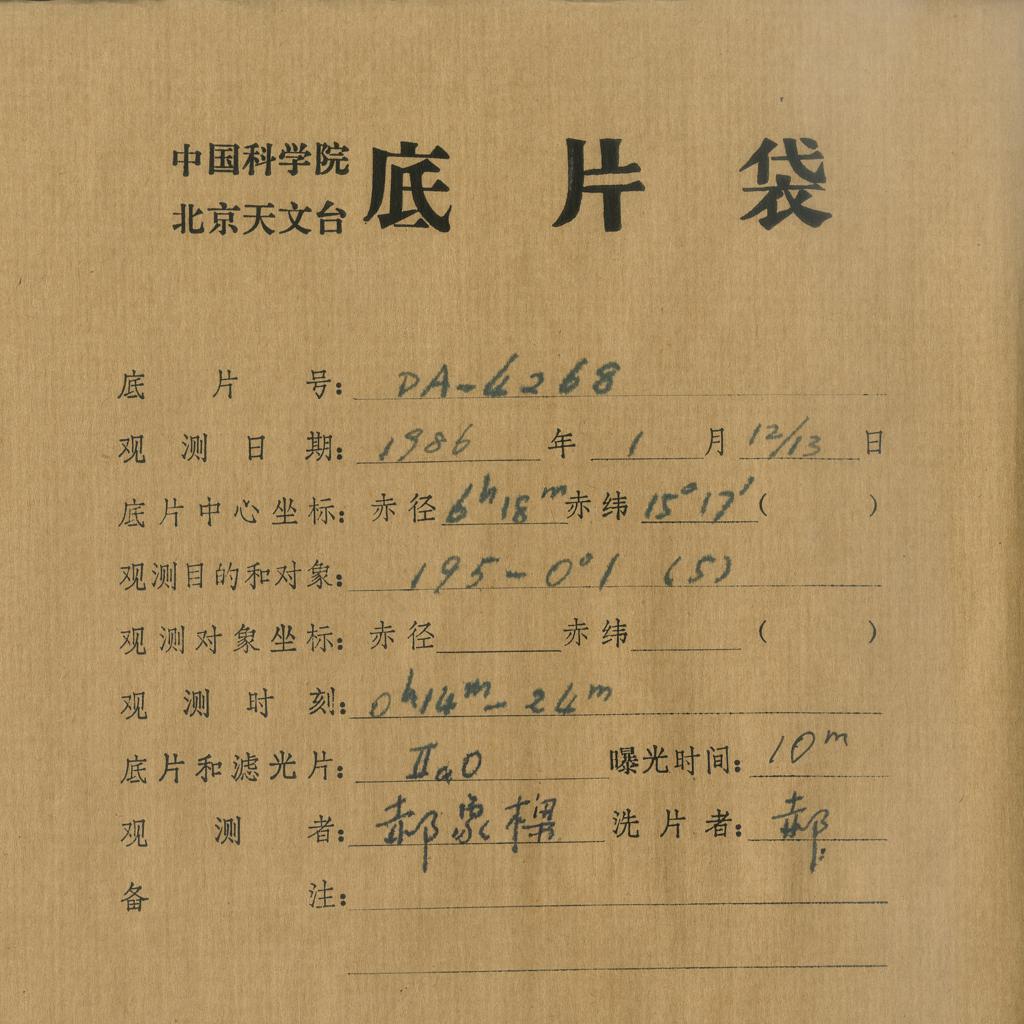 中国科学院
北京天文台 底片袋
底片号: DA-4268
观测日期: 1986 年 1 月 12/13 日
底片中心坐标: 赤径 6h18m 赤纬 15°17′ ( )
观测目的和对象: 195-0°1 (5)
观测对象坐标: 赤径 赤纬 ( )
观测时刻: 0h14m-24m
底片和滤光片: IIaO 曝光时间: 10m
观测者: 郝象樑 洗片者: 郝
备注: